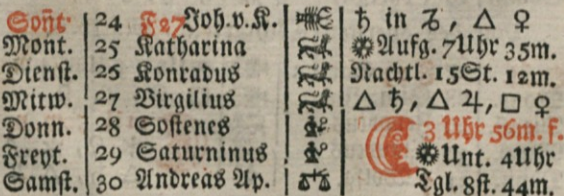 Soñt. 24 F27 Joh.v.K. ♄ in ♑, △ ♀
Mont. 25 Katharina Aufg. 7Uhr 35m.
Dienst. 26 Konradus Nachtl. 15St. 12m.
Mitw. 27 Virgilius △ ♄, △ ♃, □ ♀
Donn. 28 Sostenes 3 Uhr 56m. f.
Freyt. 29 Saturninus Unt. 4Uhr
Samst. 30 Andreas Ap. ♎ Tgl. 8st. 44m.